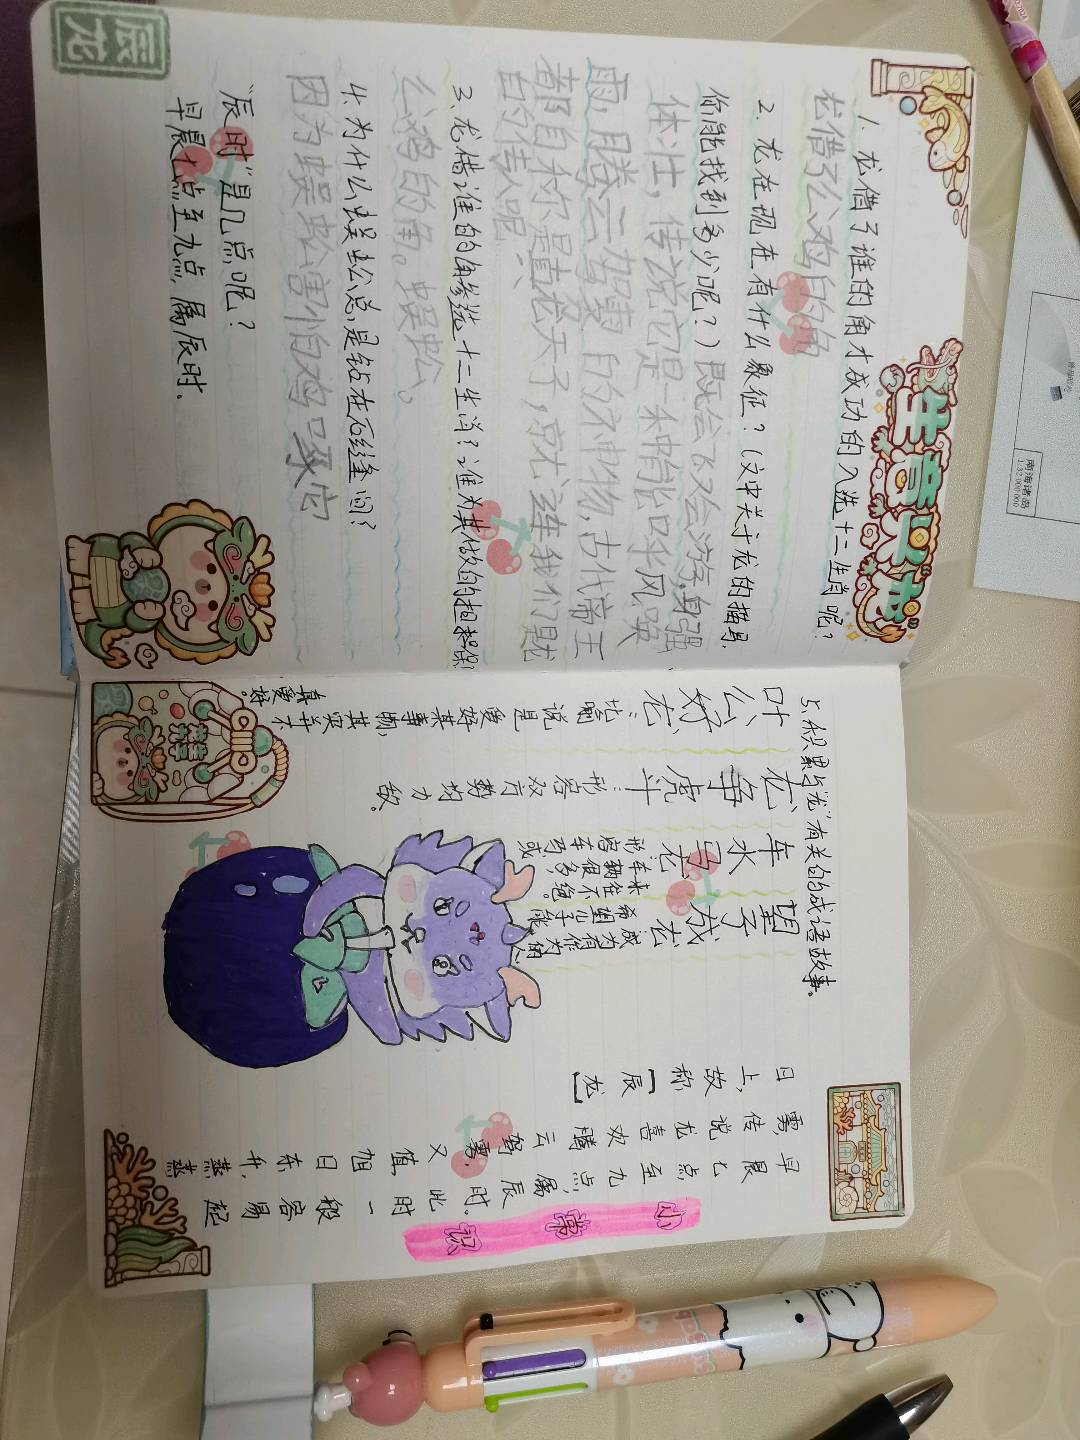 生意兴龙
1. 龙借了谁的角才成功的入选十二生肖呢?
龙借了公鸡的角
2. 龙在现在有什么象征?(文中关于龙的描写,
你能找到多少呢?)既会飞又会游,身强
体壮,传说它是一种能呼风唤
雨,腾云驾雾的神物,古代帝王
都自称是真龙天子,就连我们是龙
的传人呢
3. 龙借谁的角参选十二生肖?谁为其做的担保?
公鸡的角。蜈蚣。
4. 为什么蜈蚣总是钻在石缝间?
因为蜈蚣害怕鸡啄它
“辰时”是几点呢?
早晨七点至九点,属辰时.
辰龙
5. 积累与“龙”有关的成语故事。
叶公好龙:比喻说是爱好某事物,其实并不真爱好。
龙争虎斗:形容双方势均力敌。
车水马龙:形容车马或车辆很多,来往不绝。
望子成龙:希望儿子能成为有作为的人
小常识
早晨七点至九点,属辰时。此时一般容易起
雾,传说龙喜欢腾云驾雾,又值旭日东升,蒸蒸
日上,故称[辰龙]
南海诸岛
1:32 000 000